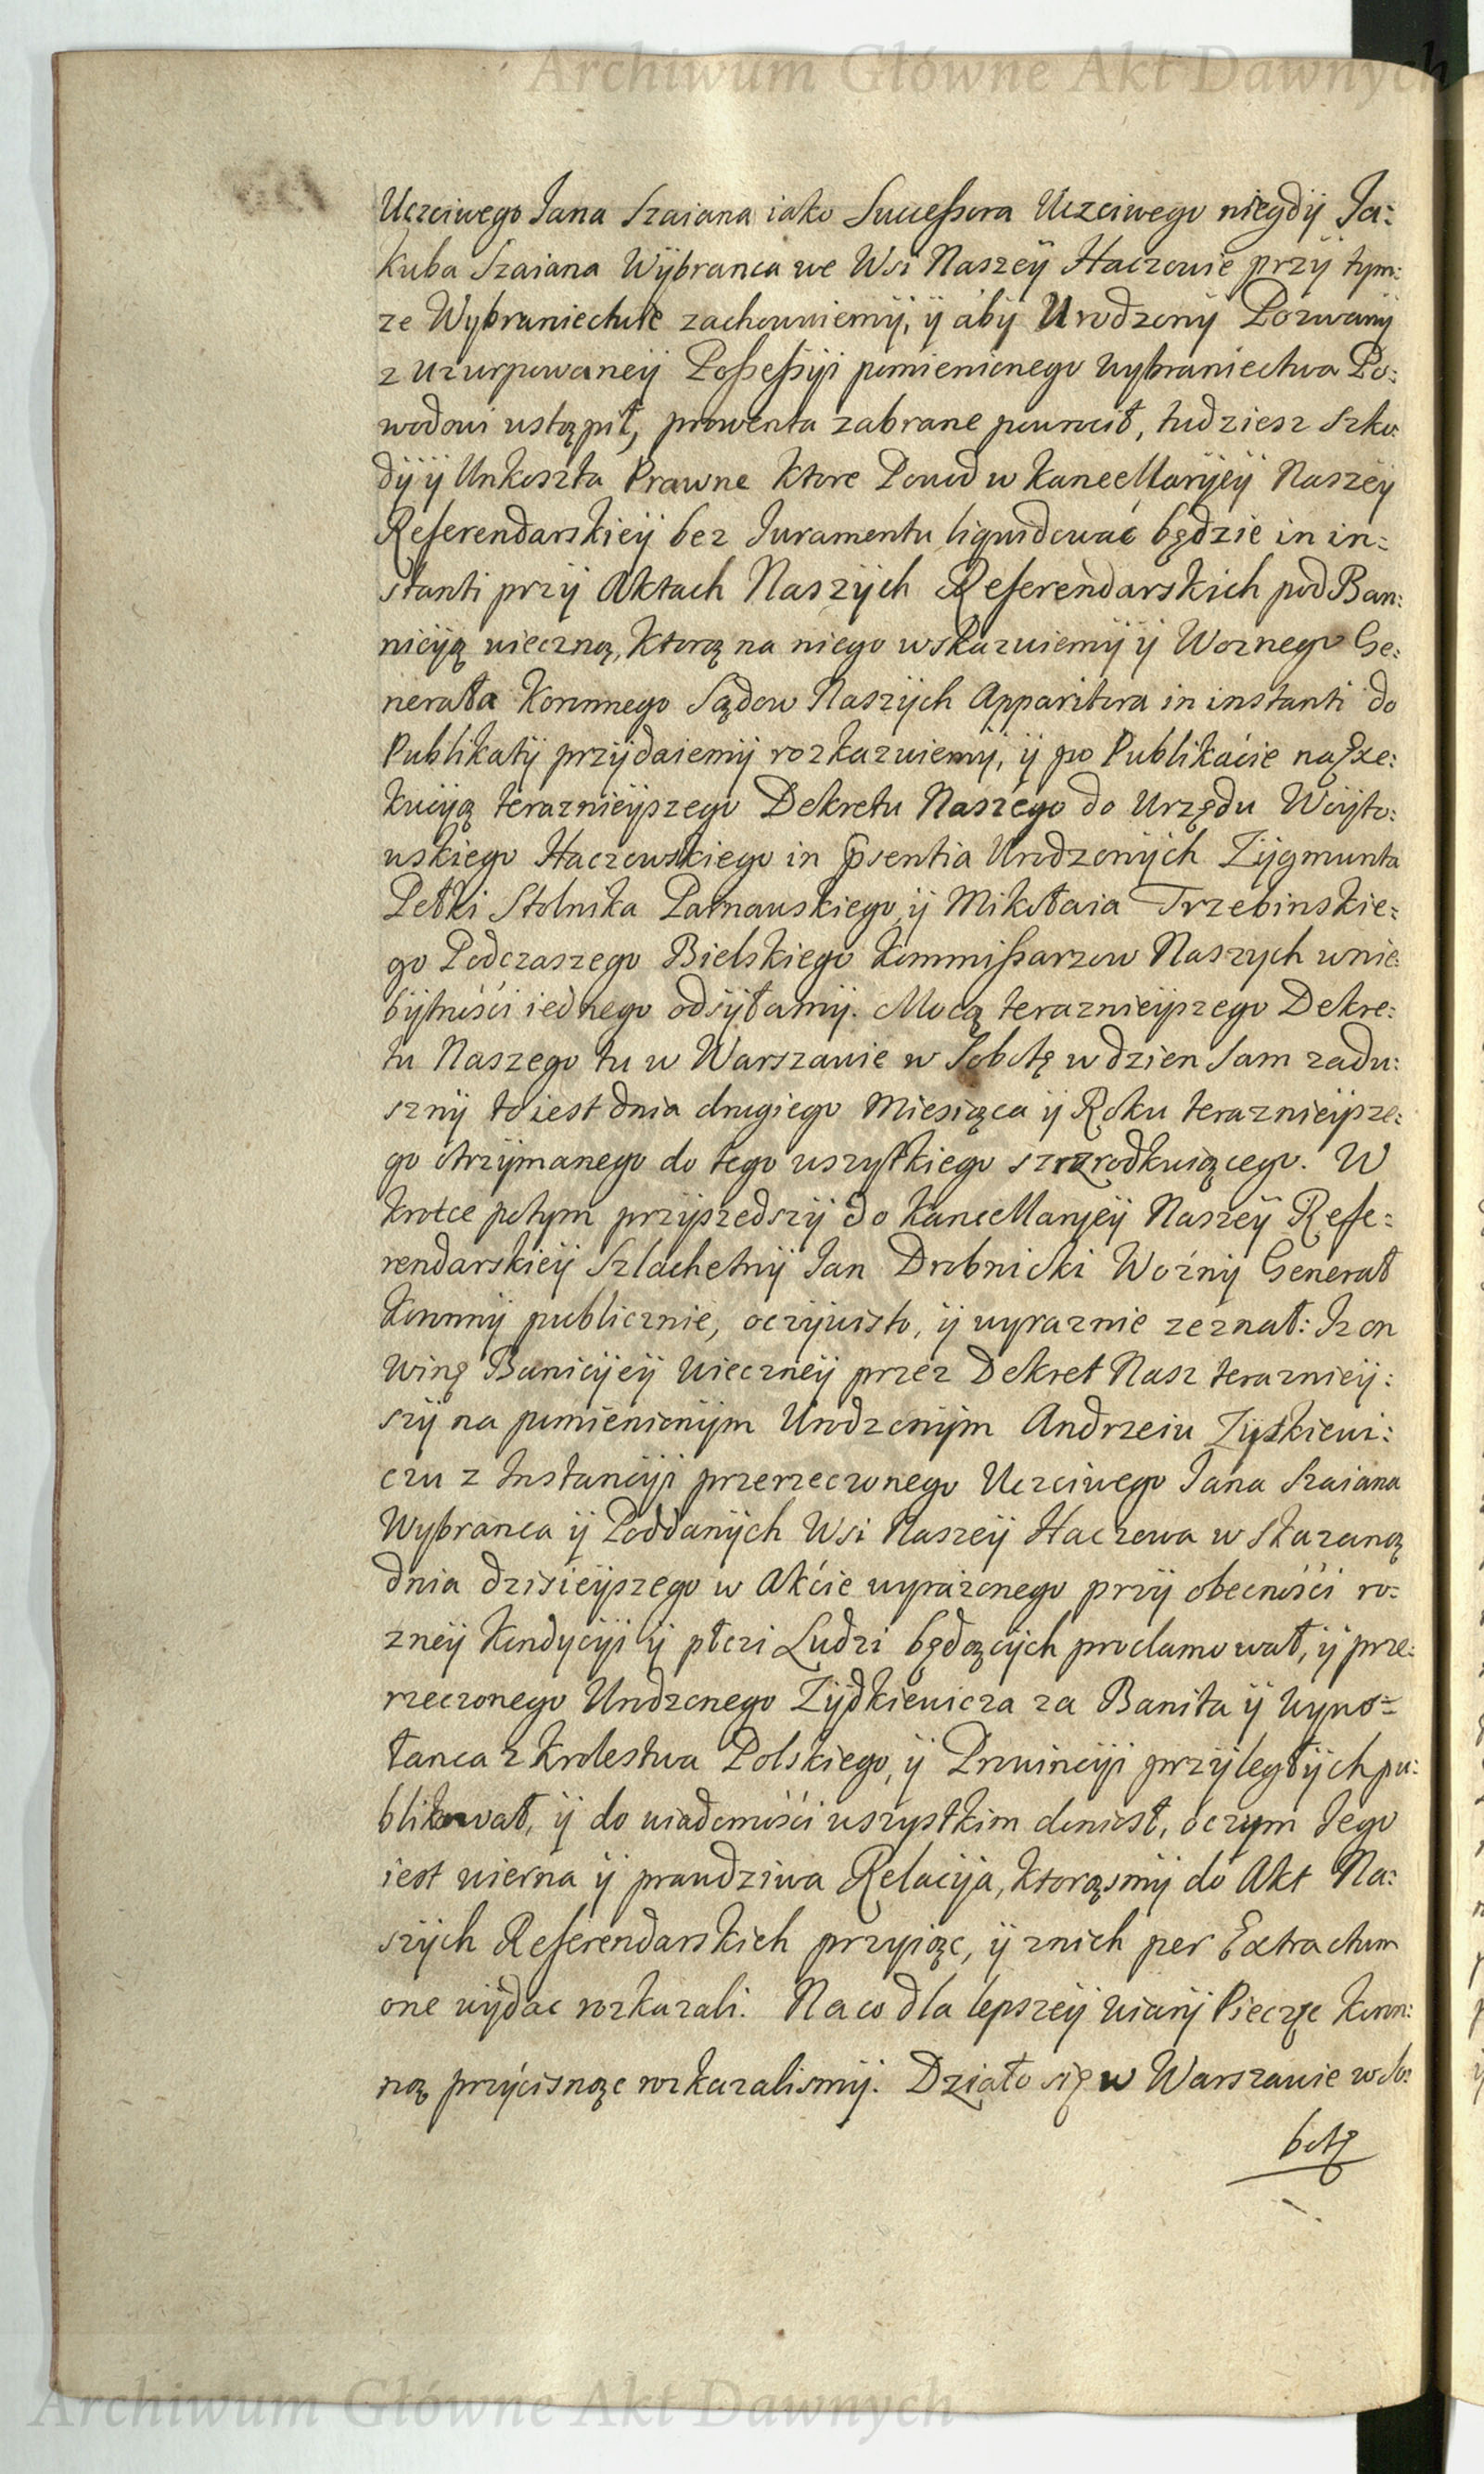 Archiwum Główne Akt Dawnych
Uczciwego Jana Szaiana iako Successora Uczciwego niegdÿ Ja:
kuba Szaiana Wÿbranca we Wsi Naszeÿ Haczowie przÿ tym:
ze Wybraniectwie zachowuiemÿ, ÿ abÿ Urodzonÿ Pozwanÿ
z uzurpowaneÿ Possessÿi pomienionego wybraniectwa Po:
wodowi ustąpił, prowenta zabrane powrocił, tudziesz szko:
dÿ ÿ Unkoszta Prawne ktore Powod w Kancellarÿeÿ Naszeÿ
Referendarskieÿ bez Juramentu liquidować będzie in in:
stanti przÿ Aktach Naszÿch Referendarskich pod Ban:
niciÿą wieczną, ktorą na niego wskazuiemÿ ÿ Woznego Ge:
nerała Koronnego Sądow Naszÿch Apparitora in instanti do
Publikatÿ przÿdaiemÿ rozkazuiemÿ, ÿ po Publikacie na Exe:
kuciÿą teraznieÿszego Dekretu Naszego do Urzędu Woÿto:
wskiego Haczowskiego in Psentia Urodzonÿch Zÿgmunta
Pełki Stolnika Parnawskiego, ÿ Mikołaia Trzebinskie:
go Podczaszego Bielskiego Kommissarzow Naszych w nie:
bÿtności iednego odsÿłamÿ. Mocą teraznieÿszego Dekre:
tu Naszego tu w Warszawie w Sobotę w dzien sam zadu:
sznÿ to iest dnia drugiego Miesiąca ÿ Roku teraznieÿsze:
go otrzÿmanego do tego wszystkiego szrzodkuiącego. W
krotce potym przÿszedszÿ do Kancellarÿeÿ Naszeÿ Refe:
rendarskieÿ Szlachetnÿ Jan Drobnicki Woźnÿ Generał
Koronnÿ publicznie, oczÿwisto, ÿ wyraznie zeznał: Iz on
winę Banicÿeÿ wieczneÿ przez Dekret Nasz teraznieÿ:
szÿ na pomienionÿm Urodzonÿm Andrzeiu Zÿdkiewi:
czu z Instancÿi przerzeczonego Uczciwego Jana Szaiana
Wybranca ÿ Poddanÿch Wsi Naszeÿ Haczowa wskazaną
dnia dzisieÿszego w Akcie wyrazonego przÿ obecności ro:
zneÿ Kondycÿi ÿ płczi Ludzi będącÿch proclamował, ÿ prze:
rzeczonego Urodzonego Zÿdkiewicza za Banita ÿ wywo:
łanca z Krolestwa Polskiego, ÿ Prowincÿi przÿległÿch pu:
blikował, ÿ do wiadomości wszystkim doniosł, o czym Jego
iest wierna ÿ prawdziwa Relacÿa, ktorąsmÿ do Akt Na:
szÿch Referendarskich przyiąc, ÿ znich per Extractum
one wÿdac rozkazali. Na co dla lepszeÿ wiarÿ Pieczęc Koron:
ną przÿcisnąc rozkazalismÿ. Działo się w Warszawie w So:
botę
Archiwum Główne Akt Dawnych